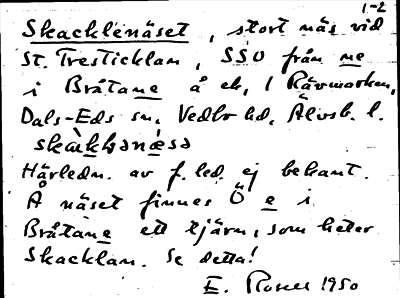 1-2
Skacklenäset, stort näs vid
St. Tresticklan, SSO från ne
i Bråtane å ek, 1 Rävmarken,
Dals-Eds sn, Vedbo hd, Älvsb. l.
skàkkɘnæ̀sɘ
Härledn. av f. led. ej bekant.
Å näset finnes Ö e i
Bråtane ett tjärn, som heter
Skacklan. Se detta!
E. Rosell 1950